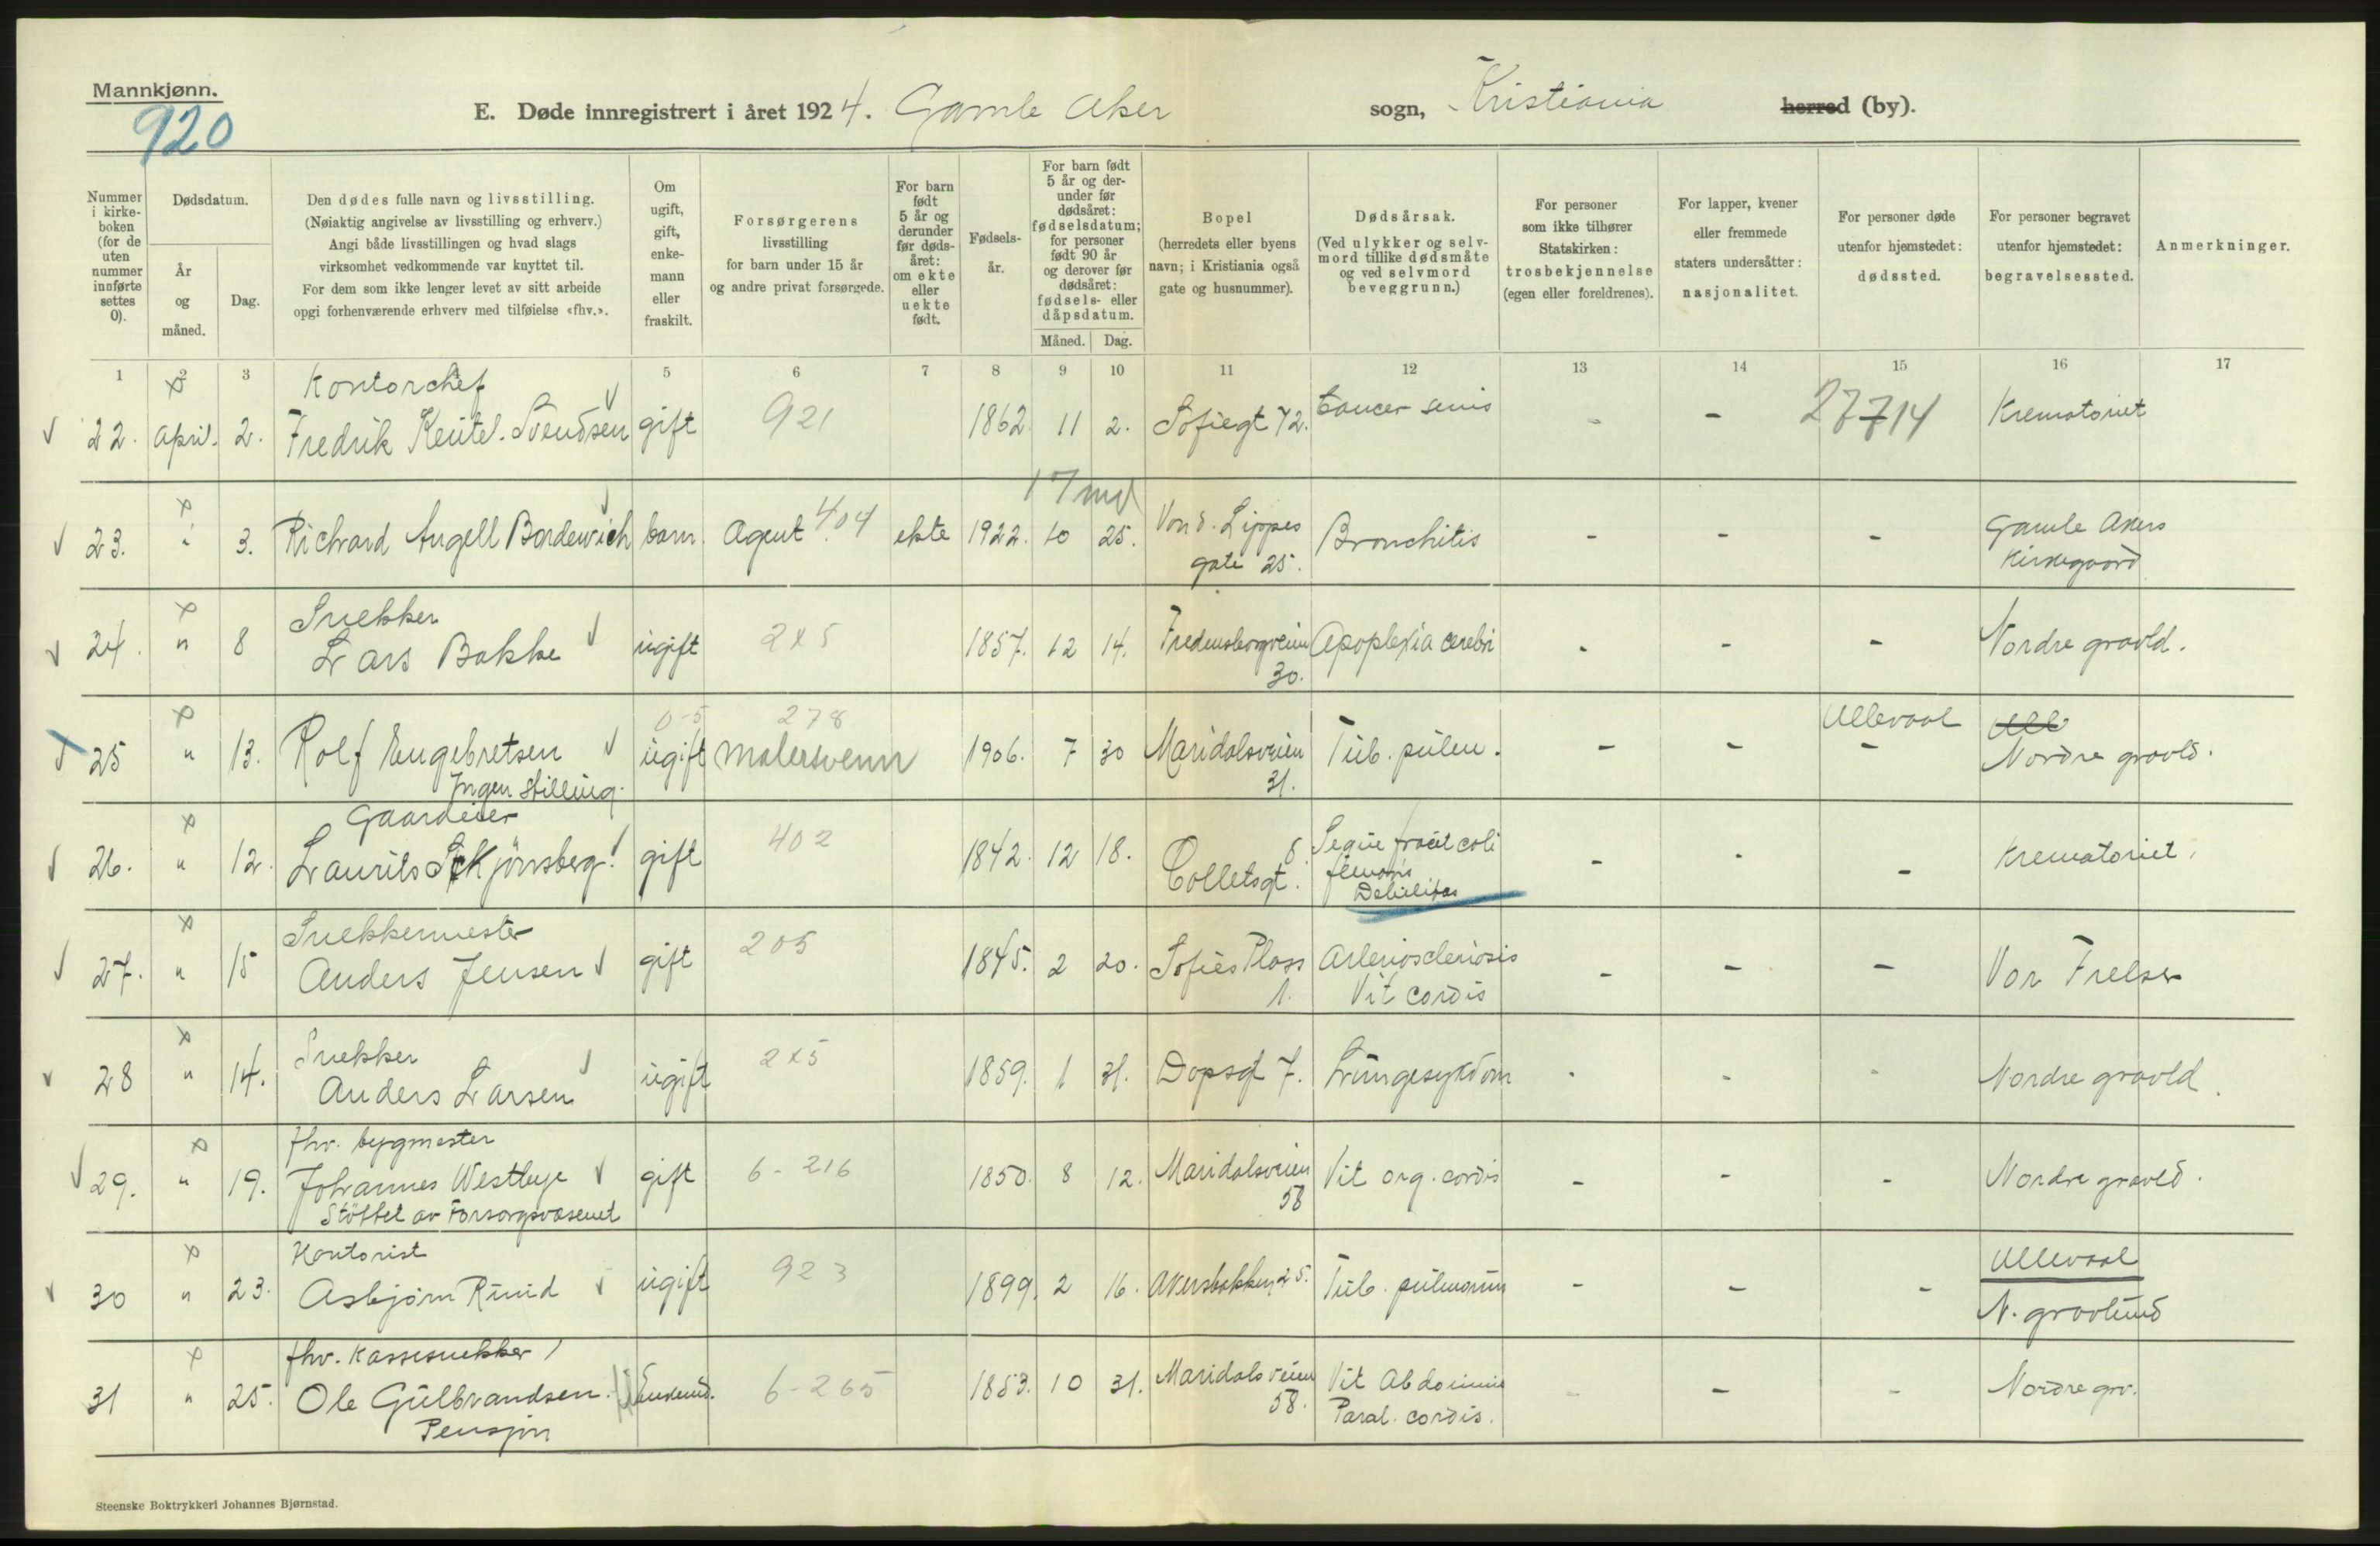 Mannkjønn.
920
E. Døde innregistrert i året 1924. Gamle Aker sogn, Kristiania herred (by).
Nummer i kirkeboken (for de uten nummer innførte settes 0).
Dødsdatum.
År og måned.
Dag.
Den dødes fulle navn og livsstilling.
(Nøiaktig angivelse av livsstilling og erhverv.)
Angi både livsstillingen og hvad slags
virksomhet vedkommende var knyttet til.
For dem som ikke lenger levet av sitt arbeide
opgi forhenværende erhverv med tilføielse «fhv.».
Om ugift, gift, enkemann eller fraskilt.
Forsørgerens
livsstilling
for barn under 15 år
og andre privat forsørgede.
For barn født 5 år og derunder før dødsåret: om ekte eller uekte født.
Fødselsår.
For barn født 5 år og derunder før dødsåret: fødselsdatum; for personer født 90 år og derover før dødsåret: fødsels- eller dåpsdatum.
Måned. Dag.
Bopel
(herredets eller byens
navn; i Kristiania også
gate og husnummer).
Dødsårsak.
(Ved ulykker og selvmord tillike dødsmåte og ved selvmord beveggrunn.)
For personer
som ikke tilhører
Statskirken:
trosbekjennelse
(egen eller foreldrenes).
For lapper, kvener
eller fremmede
staters undersåtter:
nasjonalitet.
For personer døde
utenfor hjemstedet:
dødssted.
For personer begravet
utenfor hjemstedet:
begravelsessted.
Anmerkninger.
1 2 3 4 5 6 7 8 9 10 11 12 13 14 15 16 17
Kontorchef
22. April. 2. Fredrik Keutel. Svendsen gift 921 1862. 11 2. Sofiegt 72. Cancer - - 27714 Krematoriet
17 md
23. " 3. Richard Angell Bordewich barn. Agent 404 ekte 1922. 10 25. Von d. Lippes gate 25. Bronchitis - - - Gamle Akers Kirkegaard
Snekker
24. " 8 Lars Bakke ugift 2x5 1857. 12 14. Fredensborgveien 30. Apoplexia cerebri - - - Nordre gravld.
25 " 13. Rolf Engebretsen ugift 0-5 278 malersvenn 1906. 7 30 Maridalsveien 31. Tub. pulm. - - Ullevaal - Ull Nordre gravld.
Ingen stilling.
Gaardeier
26. " 12. Laurits Skjönsberg gift 402 1842. 12 18. Colletsgt. 8. Seqve fract coli femoris Debilitas - - - Krematoriet.
Snekkermester
27. " 15 Anders Jensen gift 205 1845. 2 20. Sofies Plass 1. Arteriosclerosis Vit cordis - - - Vor Frelser
Snekker
28 " 14. Anders Larsen ugift 2x5 1859. 1 31. Dopsgt 7. Lungesykdom - - - Nordre gravld.
fhv. bygmester
29. " 19. Johannes Westbye gift 6-216 1850. 8 12. Maridalsveien 58 Vit org. cordis - - - Nordre gravld.
Stöttet av Forsorgsvæsenet
Kontorist
30 " 23. Asbjörn Ruud ugift 923 1899. 2 16. Akersbakken 25. Tub. pulmonum - - - Ullevaal N. gravlund
fhv. Kassesnekker
31 " 25. Ole Gulbrandsen. Enkemd. 6-265 1853. 10 31. Maridalsveien 58. Vit Abdominis Paral. cordis. - - - Nordre grv.
Pensjon
Steenske Boktrykkeri Johannes Bjørnstad.